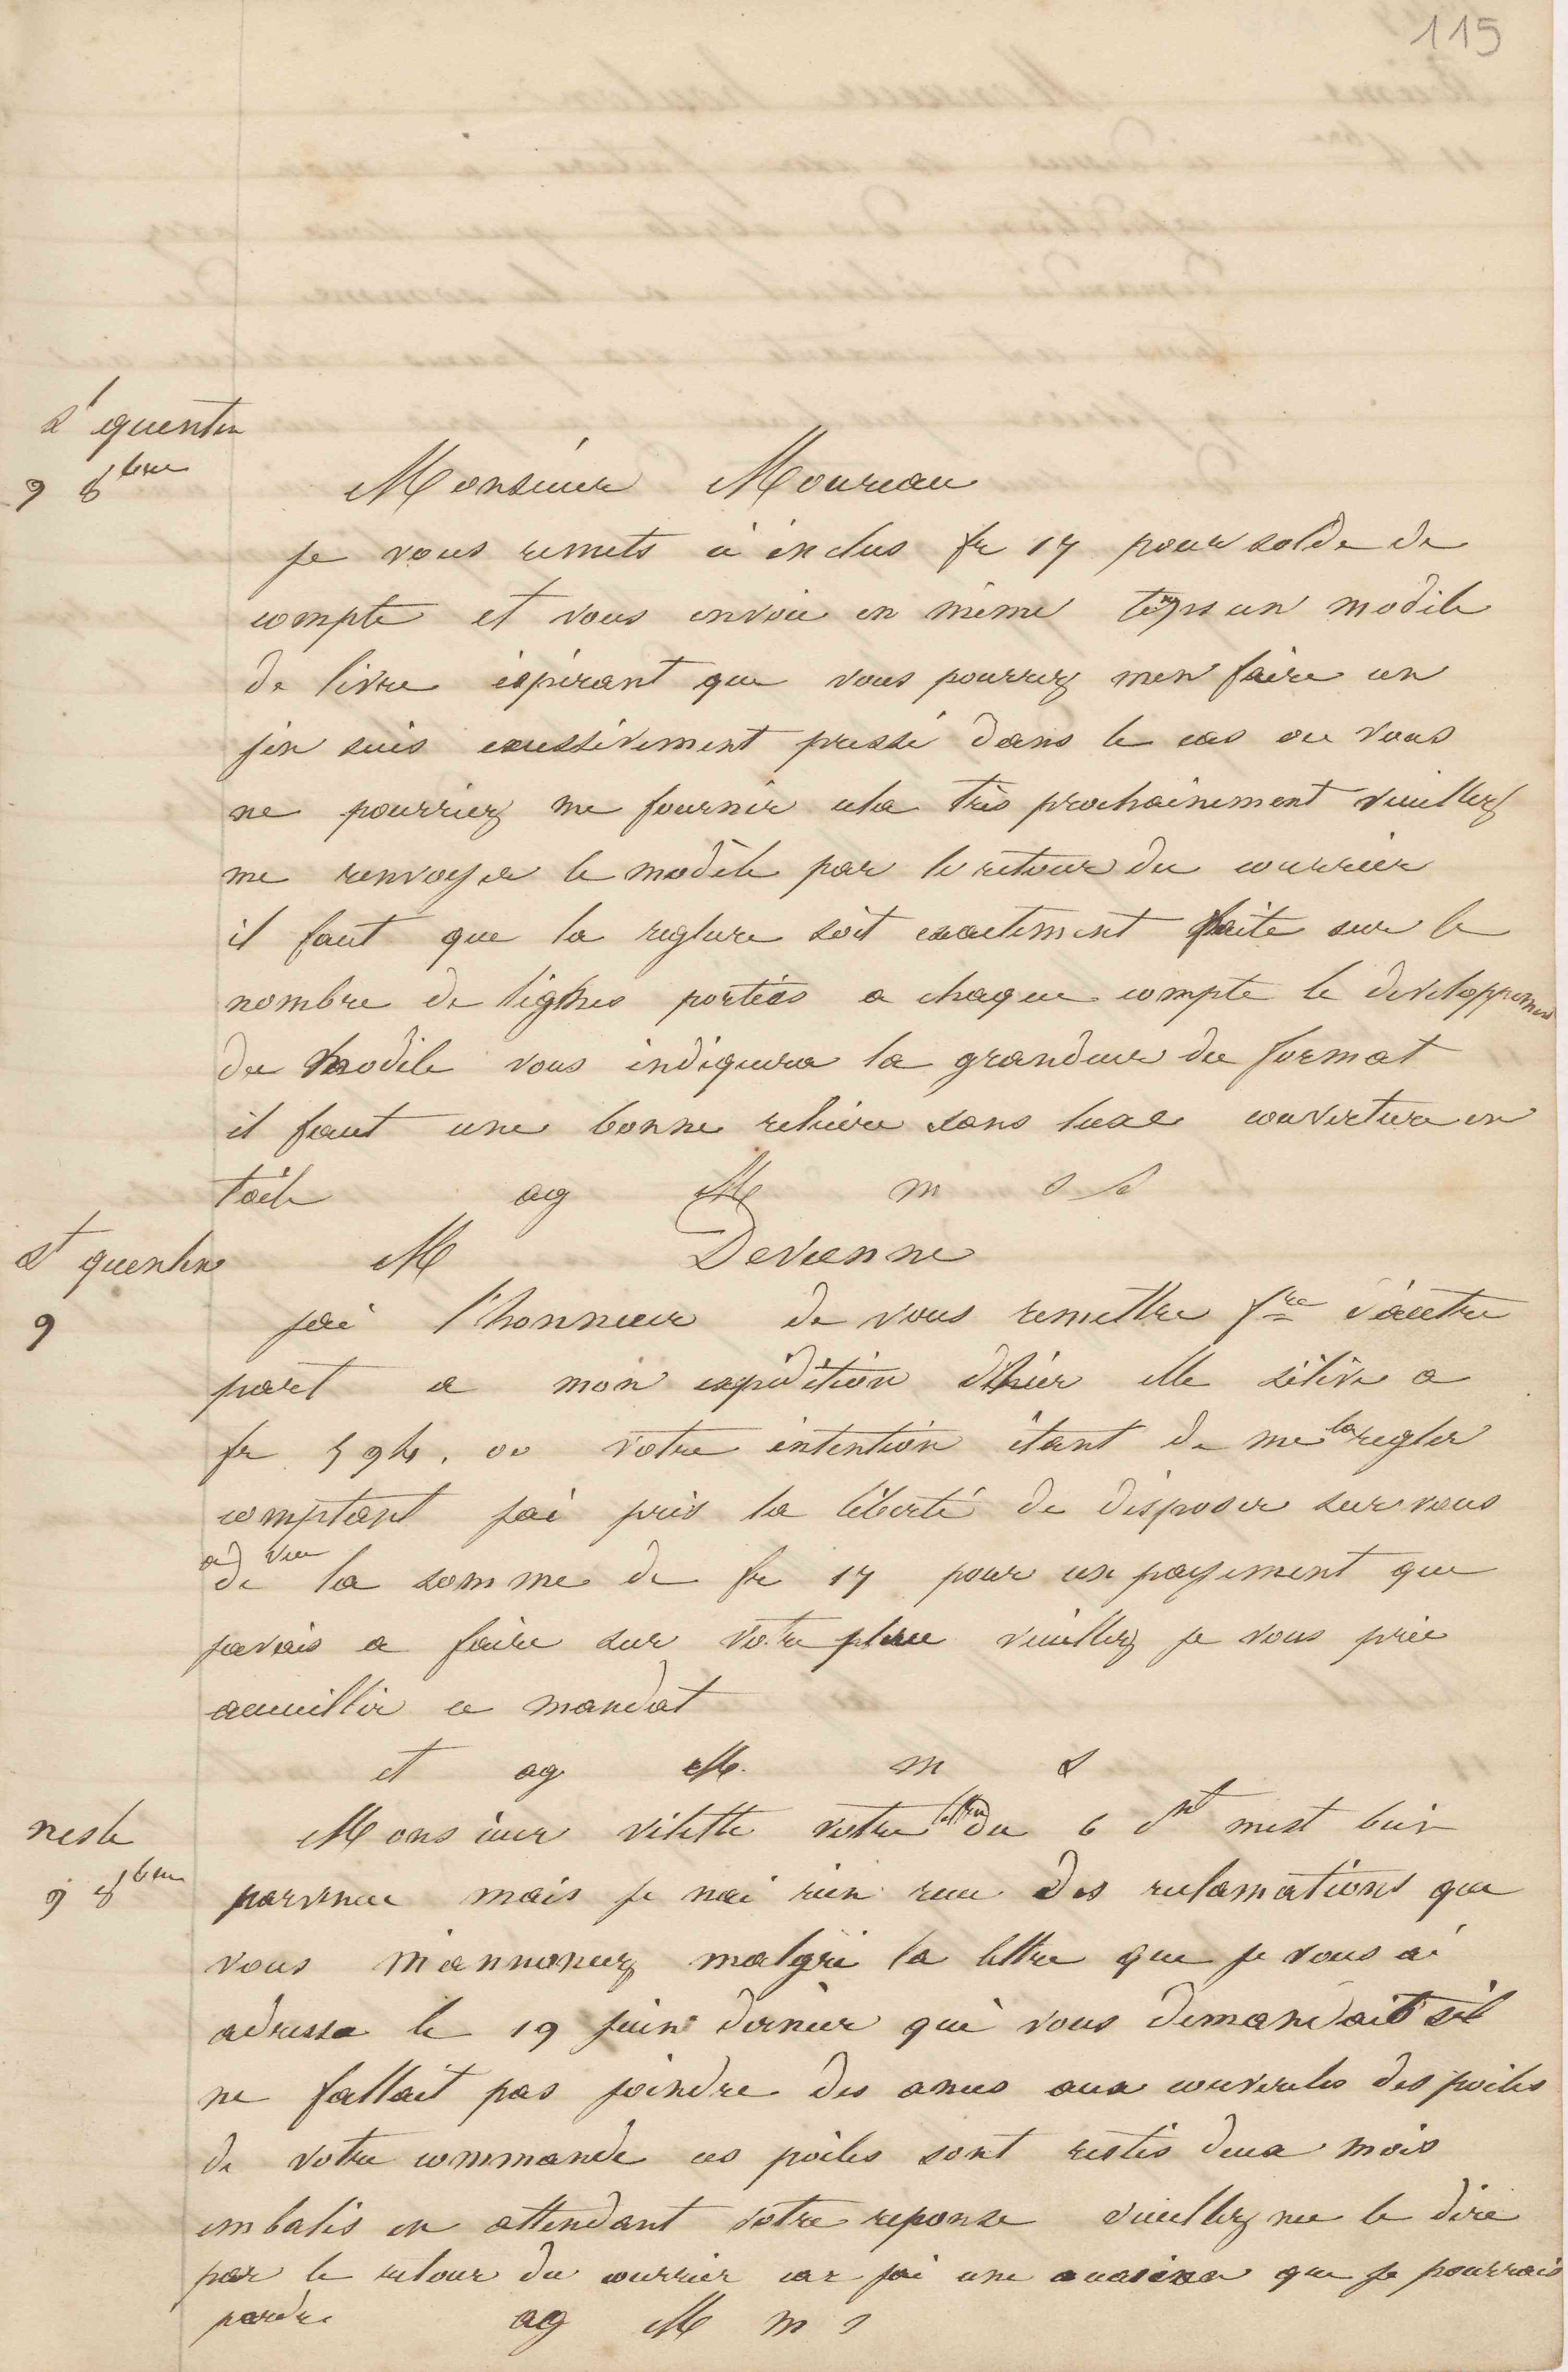 115
St quentin
9 8bre
Monsieur Moureau
je vous remets ci inclus fr 17 pour solde de
compte et vous envoie en même temps un modèle
de livre éspérant que vous pourrez men faire un
jen suis excessivement pressé dans le cas ou vous
ne pourriez me fournir cela très prochainement veuillez
me renvoyer le modèle par le retour du courrier
il faut que la reglure soit exactement faite sur le
nombre de lignes portées a chaque compte le developpement
du modèle vous indiquera la grandeur du format
il faut une bonne reliure sans luxe couverture en
toile ag M m s s
St quentin
9
M Devienne
jai l'honneur de vous remettre fre d'autre
part a mon expédition d'hier elle séléve a
fr 594. 00 votre intention étant de me la regler
comptant jai pris la liberté de disposer sur vous
a vue
de la somme de fr 17 pour un payement que
javais a faire sur votre place veuillez je vous prie
accueillir ce mandat
et ag M. m s
nesle
9 8bre
Monsieur vilette votre lettre du 6 ct mest bien
parvenue mais je nai rien reçu des reclamations que
vous m'annoncez malgré la lettre que je vous ai
adressé le 19 juin dernier qui vous demandait sil
ne fallait pas joindre des anses aux couvercles des poiles
de votre commande ces poiles sont restés deux mois
embalés en attendant votre reponse veuillez me le dire
par le retour du courrier car jai une occasion que je pourrais
perdre ag M m s